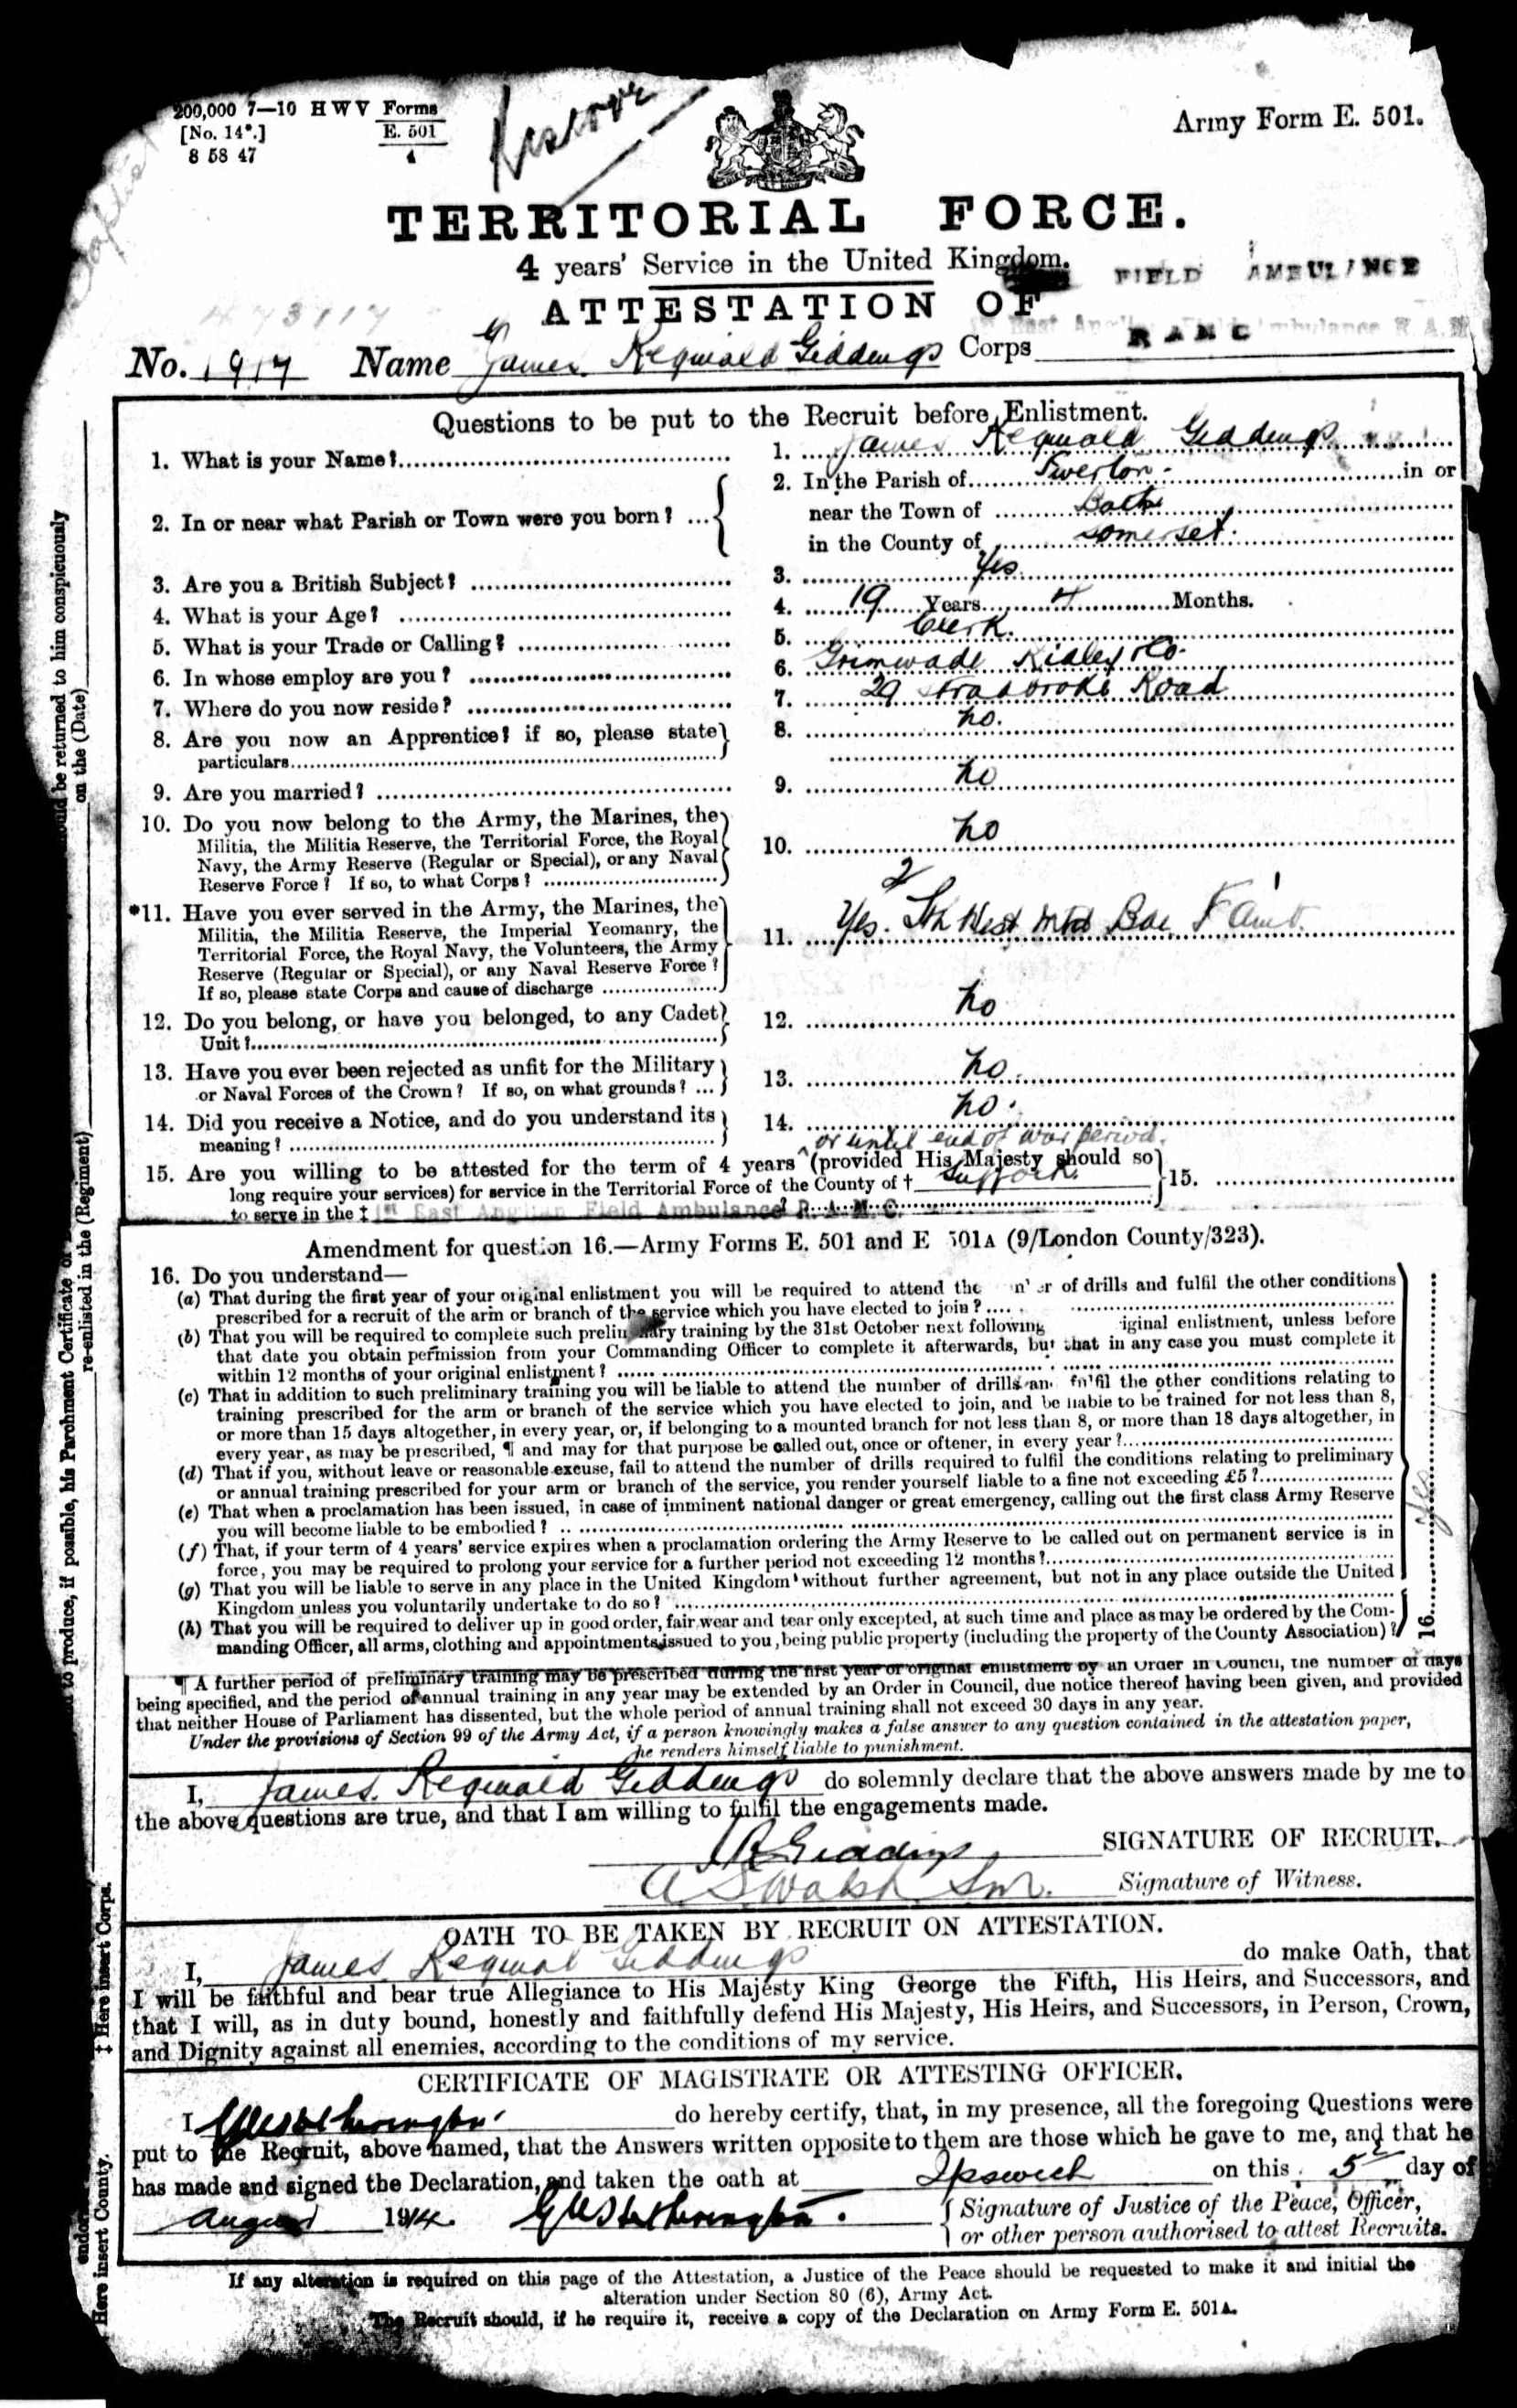 200,000 7—10 H W V Forms
[No. 14*.] E. 501
8 58 47 4
Reserve
Army Form E. 501.
TERRITORIAL FORCE.
4 years' Service in the United Kingdom.
FIELD AMBULANCE
ATTESTATION OF
473117
No. 1917 Name James Reginald Giddings Corps RAMC
Questions to be put to the Recruit before Enlistment.
1. What is your Name? 1. James Reginald Giddings
2. In or near what Parish or Town were you born? ... 2. In the Parish of Twerton in or
near the Town of Bath
in the County of Somerset.
3. Are you a British Subject? 3. Yes
4. What is your Age? 4. 19 Years 4 Months.
5. What is your Trade or Calling? 5. Clerk.
6. In whose employ are you? 6. Grimwade Ridley & Co.
7. Where do you now reside? 7. 29 Stradbroke Road
8. Are you now an Apprentice? if so, please state 8. no.
particulars
9. Are you married? 9. no
10. Do you now belong to the Army, the Marines, the
Militia, the Militia Reserve, the Territorial Force, the Royal
Navy, the Army Reserve (Regular or Special), or any Naval
Reserve Force? If so, to what Corps? 10. no
*11. Have you ever served in the Army, the Marines, the
Militia, the Militia Reserve, the Imperial Yeomanry, the
Territorial Force, the Royal Navy, the Volunteers, the Army
Reserve (Regular or Special), or any Naval Reserve Force?
If so, please state Corps and cause of discharge 11. Yes. 2 Sth West Mtd Bde F Amb.
12. Do you belong, or have you belonged, to any Cadet
Unit? 12. no
13. Have you ever been rejected as unfit for the Military
or Naval Forces of the Crown? If so, on what grounds? ... 13. no
14. Did you receive a Notice, and do you understand its
meaning? 14. no.
or until end of war period.
15. Are you willing to be attested for the term of 4 years (provided His Majesty should so
long require your services) for service in the Territorial Force of the County of † Suffolk. 15.
to serve in the ‡ 1st East Anglian Field Ambulance R.A.M.C. ?
Amendment for question 16.—Army Forms E. 501 and E 501A (9/London County/323).
16. Do you understand—
(a) That during the first year of your original enlistment you will be required to attend the of drills and fulfil the other conditions
prescribed for a recruit of the arm or branch of the service which you have elected to join?
(b) That you will be required to complete such preliminary training by the 31st October next following iginal enlistment, unless before
that date you obtain permission from your Commanding Officer to complete it afterwards, but that in any case you must complete it
within 12 months of your original enlistment?
(c) That in addition to such preliminary training you will be liable to attend the number of drills and fulfil the other conditions relating to
training prescribed for the arm or branch of the service which you have elected to join, and be liable to be trained for not less than 8,
or more than 15 days altogether, in every year, or, if belonging to a mounted branch for not less than 8, or more than 18 days altogether, in
every year, as may be prescribed, ¶ and may for that purpose be called out, once or oftener, in every year?
(d) That if you, without leave or reasonable excuse, fail to attend the number of drills required to fulfil the conditions relating to preliminary
or annual training prescribed for your arm or branch of the service, you render yourself liable to a fine not exceeding £5?
(e) That when a proclamation has been issued, in case of imminent national danger or great emergency, calling out the first class Army Reserve
you will become liable to be embodied?
(f) That, if your term of 4 years' service expires when a proclamation ordering the Army Reserve to be called out on permanent service is in
force, you may be required to prolong your service for a further period not exceeding 12 months?
(g) That you will be liable to serve in any place in the United Kingdom without further agreement, but not in any place outside the United
Kingdom unless you voluntarily undertake to do so?
(h) That you will be required to deliver up in good order, fair wear and tear only excepted, at such time and place as may be ordered by the Com-
manding Officer, all arms, clothing and appointments issued to you, being public property (including the property of the County Association)?
16. Yes
¶ A further period of preliminary training may be prescribed during the first year of original enlistment by an Order in Council, the number of days
being specified, and the period of annual training in any year may be extended by an Order in Council, due notice thereof having been given, and provided
that neither House of Parliament has dissented, but the whole period of annual training shall not exceed 30 days in any year.
Under the provisions of Section 99 of the Army Act, if a person knowingly makes a false answer to any question contained in the attestation paper,
he renders himself liable to punishment.
I, James Reginald Giddings do solemnly declare that the above answers made by me to
the above questions are true, and that I am willing to fulfil the engagements made.
J R Giddings SIGNATURE OF RECRUIT.
A S Walsh Signature of Witness.
OATH TO BE TAKEN BY RECRUIT ON ATTESTATION.
I, James Reginal Giddings do make Oath, that
I will be faithful and bear true Allegiance to His Majesty King George the Fifth, His Heirs, and Successors, and
that I will, as in duty bound, honestly and faithfully defend His Majesty, His Heirs, and Successors, in Person, Crown,
and Dignity against all enemies, according to the conditions of my service.
CERTIFICATE OF MAGISTRATE OR ATTESTING OFFICER.
I do hereby certify, that, in my presence, all the foregoing Questions were
put to the Recruit, above named, that the Answers written opposite to them are those which he gave to me, and that he
has made and signed the Declaration, and taken the oath at Ipswich on this 5 day of
August 1914. Signature of Justice of the Peace, Officer,
or other person authorised to attest Recruits.
If any alteration is required on this page of the Attestation, a Justice of the Peace should be requested to make it and initial the
alteration under Section 80 (6), Army Act.
The Recruit should, if he require it, receive a copy of the Declaration on Army Form E. 501A.
be returned to him conspicuously
on the (Date)
to produce, if possible, his Parchment Certificate
re-enlisted in the (Regiment)
‡ Here insert Corps.
Here insert County.